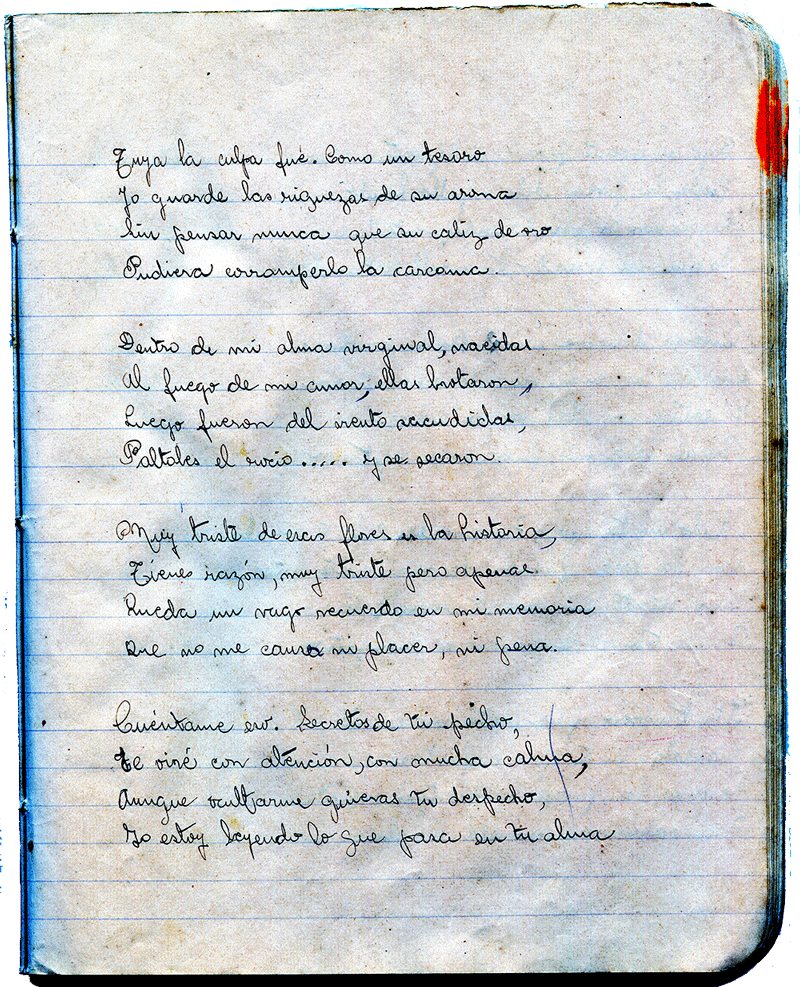 Tuya la culpa fué. Como un tesoro
Yo guarde las riquezas de su aroma
Sin pensar nunca que su caliz de oro
Pudiera corromperlo la carcoma.
Dentro de mi alma virginal, nacidas
Al fuego de mi amor, ellas brotaron,
Luego fueron del viento sacudidas,
Faltales el rocio ..... y se secaron.
Muy triste de esas flores es la historia,
Tienes razón, muy triste pero apenas
Queda un vago recuerdo en mi memoria
Que no me causa ni placer, ni pena.
Cuéntame eso. Secretos de tu pecho,
Te oiré con atención, con mucha calma,
Aunque ocultarme quieras tu despecho,
Yo estoy leyendo lo que pasa en tu alma